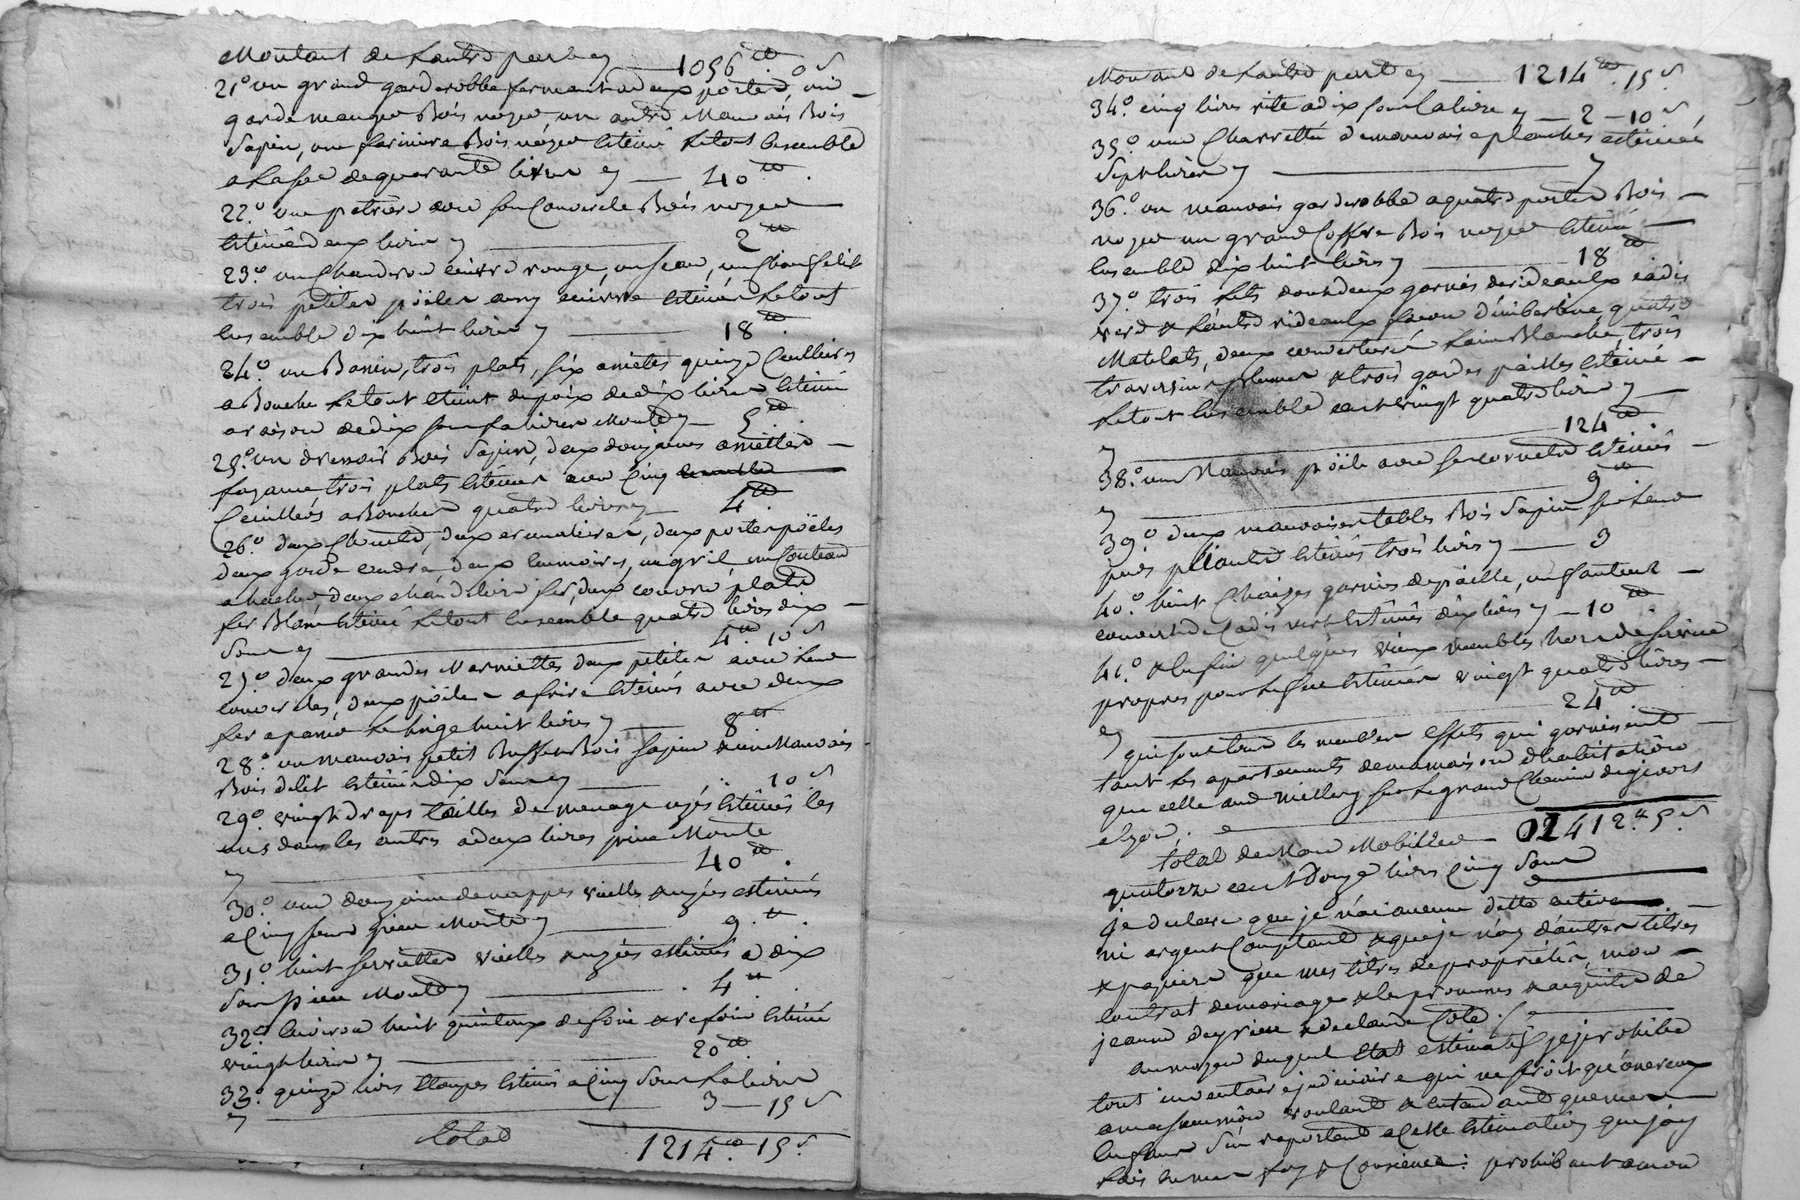 Montant de l'autre part cy 1056 ₶ 0 s
21.º un grand garderobbe fermant a deux portes, un
garde manger Bois noyer un autre Mauvais Bois
Sapin, une fariniere Bois noyer Estimé le tout Ensemble
a la some de quarante livres cy 40 ₶
22.º une petriere avec son Couvercle Bois noyer
Estimée deux livres cy 2 ₶
23.º un Chaudron cuivre rouge, un seau, un Chaufelit
trois petites pöiles aussy cuivre Estimés le tout
Ensemble dix huit livres cy 18 ₶
24.º un Bassin, trois plats, six assietes quinze Cuillieres
a Bouche le tout Etaint du poix de dix livres Estimé
a raison de dix sous la livre Monte cy 5 ₶
25.º un dressoir Bois Sapin, deux douzaines assiettes
fayance trois plats Estimés avec Cinq
Ceuilleres a Boucher quatre livres cy 4 ₶
26.º deux Chenets, deux cremalieres, deux porte pöeles
deux garde cendre deux lumoires, un gril un Couteau
a hacher deux chandeliers fer, deux couvre plats
fer Blanc Estimé le tout Ensemble quatre livres dix
Sous cy 4 ₶ 10 s
27.º deux grandes Marmittes deux petites avec leur
couvercles, deux pöiles a frire Estimés avec deux
fer a passer le linge huit livres cy 8 ₶
28.º un mauvais petit Buffet Bois Sapin & un Mauvais
Bois de lit Estimé dix Sous cy 10 s
29.º vingt draps toilles de menage uzés Estimés les
uns dans les autres a deux livres piece Monte
cy 40 ₶
30.º une douzaine de nappes vielles & uzées estimées
a Cinq sous piece Monte cy 9 ₶
31.º huit serviettes vielles & uzées estimées a dix
Sous piece Monte cy 4 ₶
32.º Environ huit quintaux de foin & refoin Estimé
vingt livres cy 20 ₶
33.º quinze livres Etoupes Estimé a Cinq Sous la livre
cy 3 — 15 s
Total 1214 ₶ 15 s
Montant de l'autre part cy 1214 ₶ 15 s
34.º cinq livres rite a dix sous la livre cy 2 — 10 s
35.º une Charrettée de mauvaise planches estimée
Sept livres cy 7
36.º un mauvais garderobbe a quatre portes Bois
noyer un grand Coffre Bois noyer Estimé
Ensemble dix huit livres cy 18 ₶
37.º trois lits dont deux garnis de rideaulx cadis
verd & l'autre rideaulx facon quatre
Matelats, deux couvertures laine Blanche, trois
traversins plumes & trois gardes pailles Estimé
le tout Ensemble cent vingt quatre livres cy
cy 124 ₶
38.º un Mauvais pöile avec ses cornets Estimés
cy 9 ₶
39.º deux mauvaises tables Bois Sapin sur leur
pieds pliants Estimés trois livres cy 3
40.º huit Chaizes garnies de paille, un fauteuil
couvert de Cadis vert Estimés dix livres cy 10 ₶
41.º & Enfin quelques vieux meubles hors de service
propres pour le feu Estimés vingt quatre livres
cy 24 ₶
qui sont tous les meubles Effets qui garnissent
tant les apartements de ma maison d'habitation
que celle aud Millery sur le grand Chemin de givors
a Lyon.
Total de Mon Mobilier 1412 ₶ 5 s
quatorze cent douze livres Cinq Sous
Je declare que je n'ai aucune dette active
ni argent Comptant & que je n'ay d'autres titres
& papiers que mes titres de propriétés, mon
Contrat de mariage & les promesses & acquits de
jeanne & de claude
au moyen duquel Etat estimatif je prohibe
tout inventaire judiciaire qui ne seroit qu'onereux
a ma succession voulant & entendant que mes
Enfans S'en raportent a Cette Estimation que j'ay
fais En mon foy & Consience: prohibant a mon